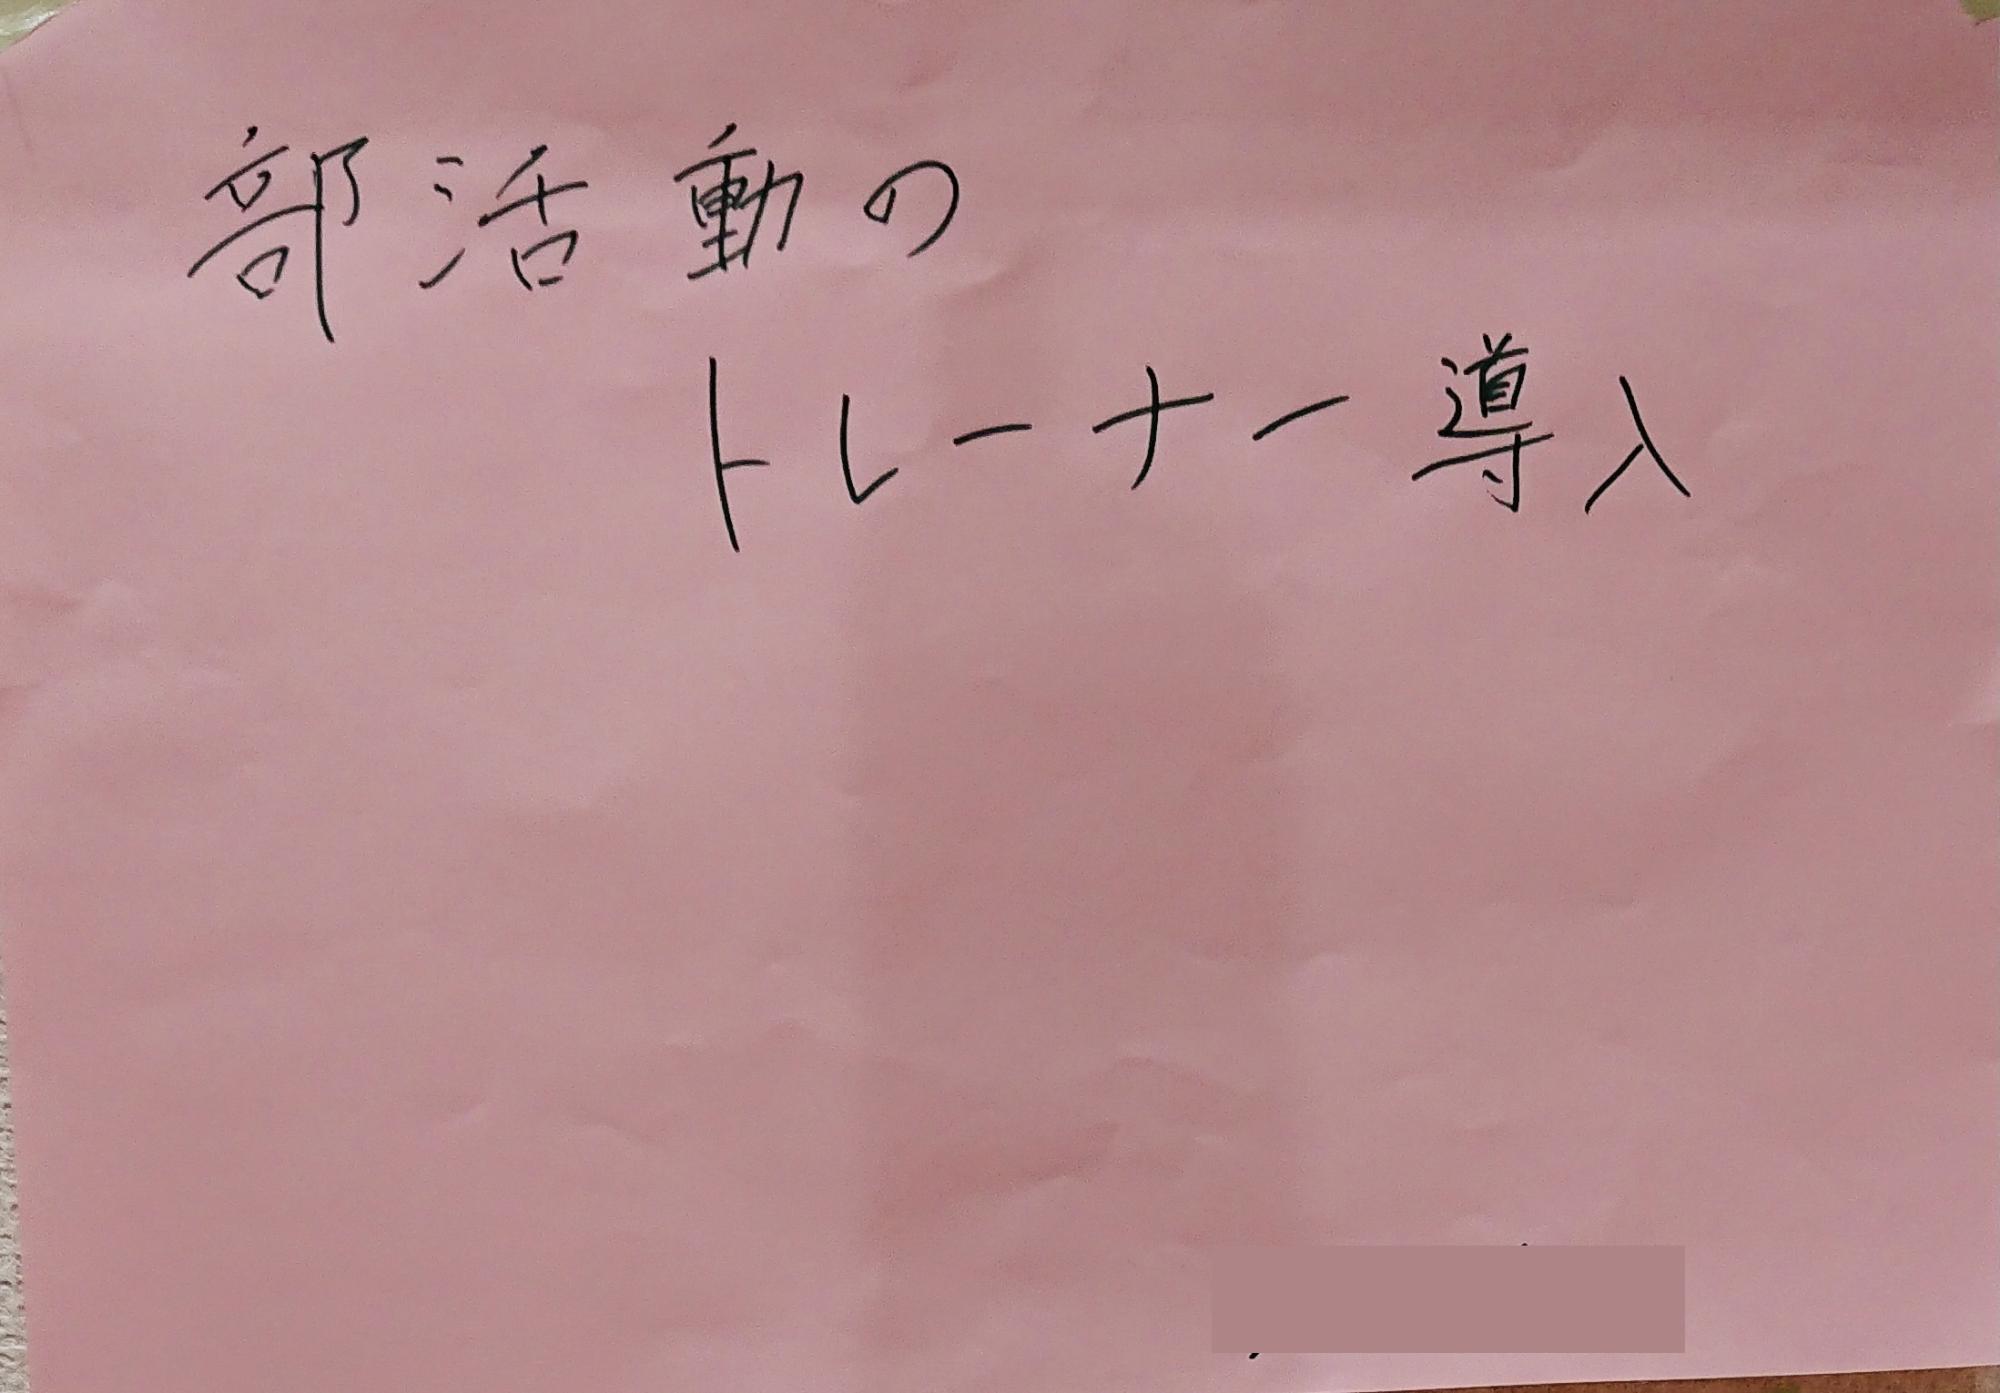 部活動の
トレーナー導入